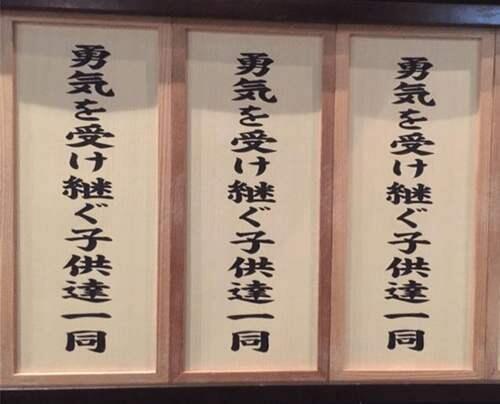 勇気を受け継ぐ子供達一同
勇気を受け継ぐ子供達一同
勇気を受け継ぐ子供達一同